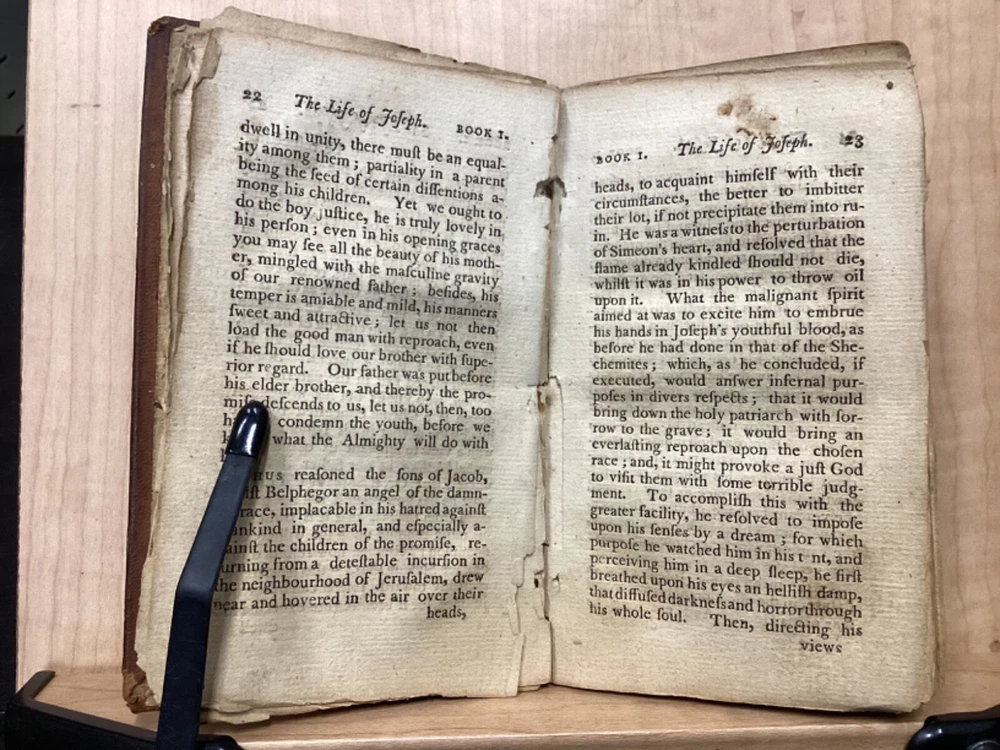 22 The Life of Joſeph. BOOK I.
dwell in unity, there muſt be an equal-
ity among them ; partiality in a parent
being the ſeed of certain diſſentions a-
mong his children. Yet we ought to
do the boy juſtice, he is truly lovely in
his perſon ; even in his opening graces
you may ſee all the beauty of his moth-
er, mingled with the maſculine gravity
of our renowned father ; beſides, his
temper is amiable and mild, his manners
ſweet and attractive ; let us not then
load the good man with reproach, even
if he ſhould love our brother with ſupe-
rior regard. Our father was put before
his elder brother, and thereby the pro-
miſe deſcends to us, let us not, then, too
condemn the youth, before we
what the Almighty will do with
HUS reaſoned the ſons of Jacob,
Belphegor an angel of the damn-
race, implacable in his hatred againſt
ankind in general, and eſpecially a-
ainſt the children of the promiſe, re-
urning from a deteſtable incurſion in
the neighbourhood of Jeruſalem, drew
near and hovered in the air over their
heads,
BOOK I. The Life of Joſeph. 23
heads, to acquaint himſelf with their
circumſtances, the better to imbitter
their lot, if not precipitate them into ru-
in. He was a witneſs to the perturbation
of Simeon's heart, and reſolved that the
flame already kindled ſhould not die,
whilſt it was in his power to throw oil
upon it. What the malignant ſpirit
aimed at was to excite him to embrue
his hands in Joſeph's youthful blood, as
before he had done in that of the She-
chemites ; which, as he concluded, if
executed, would anſwer infernal pur-
poſes in divers reſpects ; that it would
bring down the holy patriarch with ſor-
row to the grave ; it would bring an
everlaſting reproach upon the choſen
race ; and, it might provoke a juſt God
to viſit them with ſome terrible judg-
ment. To accompliſh this with the
greater facility, he reſolved to impoſe
upon his ſenſes by a dream ; for which
purpoſe he watched him in his t nt, and
perceiving him in a deep ſleep, he firſt
breathed upon his eyes an helliſh damp,
that diffuſed darkneſs and horror through
his whole ſoul. Then, directing his
views